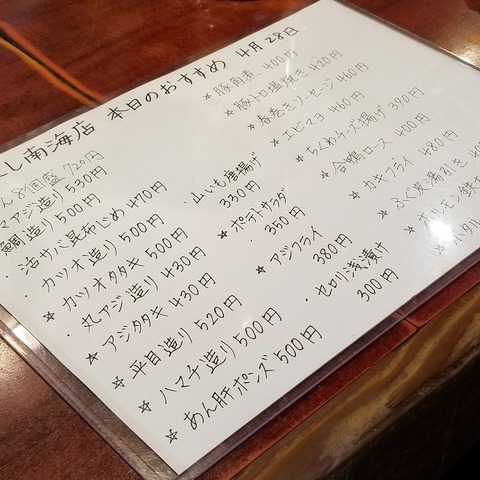 南海店 本日のおすすめ 4月28日
8個盛 720円
マアジ造り 530円
鯛造り 500円
・活サバ昆布じめ 470円
・カツオ造り 500円
☆カツオタタキ 500円
・丸アジ造り 430円
☆アジタタキ 430円
☆平目造り 520円
☆ハマチ造り 500円
☆あん肝ポンズ 500円
・山いも唐揚げ
330円
☆ポテトサラダ
350円
☆アジフライ
380円
・セロリ浅漬け
300円
☆豚角煮 400円
☆豚トロ塩焼き 420円
☆春巻きソーセージ
☆エビマヨ 460円
460円
☆ちくわチーズ揚げ 390円
☆合鴨ロース 400円
☆カキフライ 480円
☆ふく皮湯引き
☆ホルモン鉄
☆ホタル